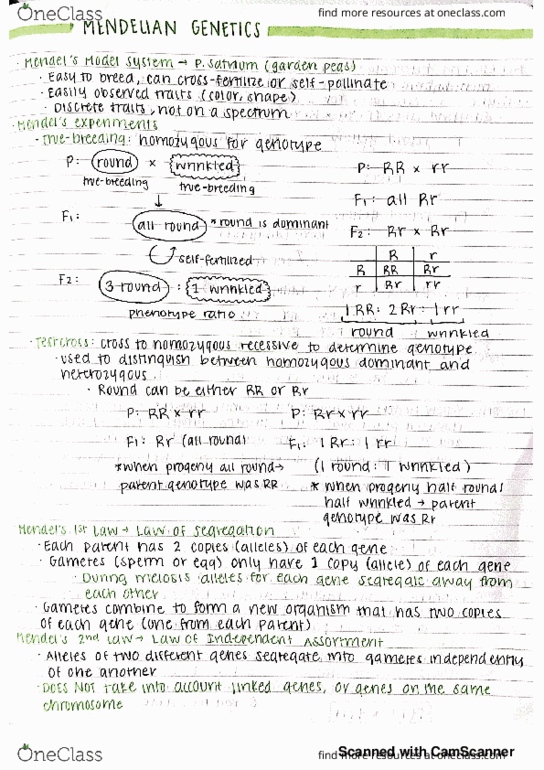 OneClass
find more resources at oneclass.com
MENDELIAN GENETICS
Mendel's Model System → P. Sativum (garden peas)
· Easy to breed, can cross-fertilize or self-pollinate
· Easily observed traits (color, shape)
· Discrete traits, not on a spectrum
Mendel's experiments
· True-breeding: homozygous for genotype
P: round × wrinkled
true-breeding true-breeding
↓
F₁: all round *round is dominant
self-fertilized
F₂: 3 round : 1 wrinkled
phenotype ratio
P: RR × rr
F₁: all Rr
F₂: Rr × Rr
R r
R RR Rr
r Rr rr
1 RR: 2 Rr: 1 rr
round wrinkled
· Testcross: cross to homozygous recessive to determine genotype
· used to distinguish between homozygous dominant and
heterozygous.
· Round can be either RR or Rr
P: RR × rr
F₁: Rr (all round)
*when progeny all round→
parent genotype was RR
P: Rr × rr
F₁: 1 Rr: 1 rr
(1 round: 1 wrinkled)
* when progeny half round/
half wrinkled → parent
genotype was Rr
Mendel's 1st Law → Law of Segregation
· Each parent has 2 copies (alleles) of each gene
· Gametes (sperm or egg) only have 1 copy (allele) of each gene
· During meiosis alleles for each gene segregate away from
each other
· Gametes combine to form a new organism that has two copies
of each gene (one from each parent)
Mendel's 2nd Law → Law of Independent Assortment
· Alleles of two different genes segregate into gametes independently
of one another
· Does NOT take into account linked genes, or genes on the same
chromosome
OneClass
find more resources at oneclass.com
Scanned with CamScanner